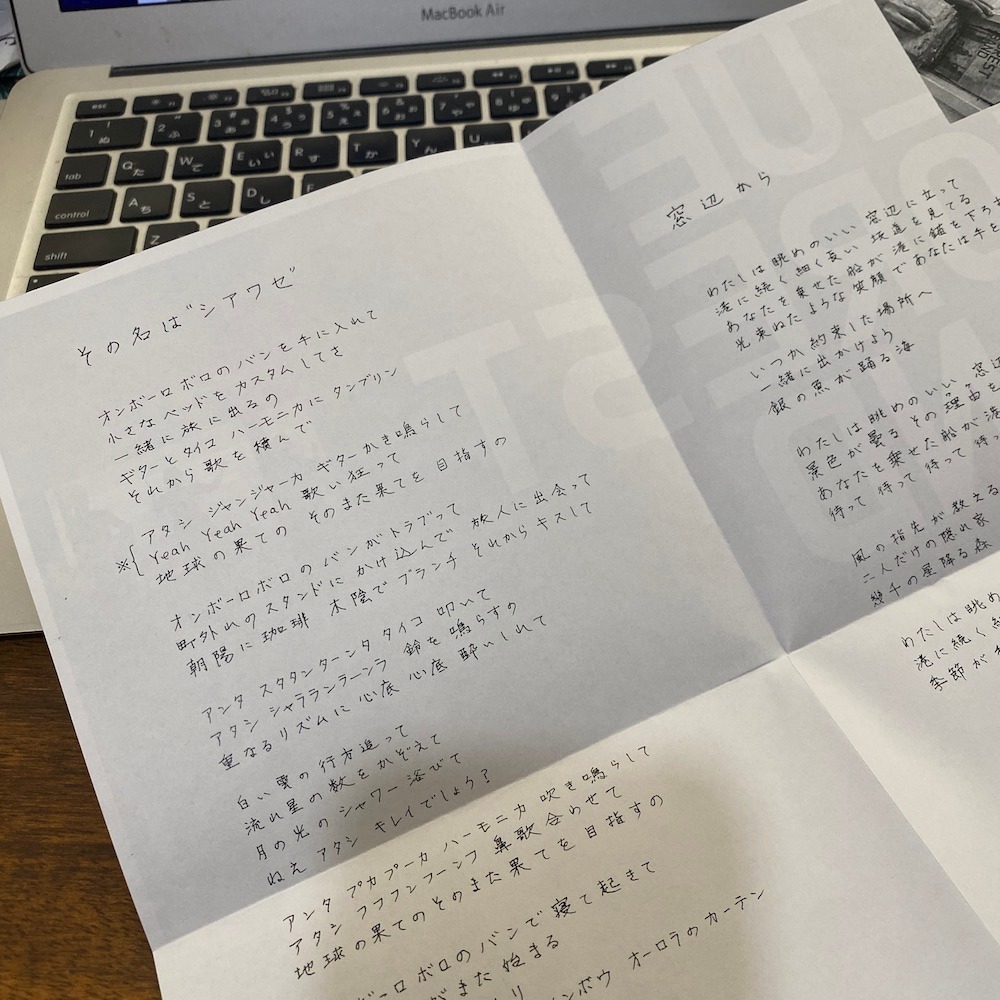 MacBook Air
esc
tab
control
shift
その名は"シアワセ"
オンボーロボロのバンを手に入れて
小さなベッドをカスタムしてさ
一緒に旅に出るの
ギターとタイコ ハーモニカに タンブリン
それから歌を積んで
※アタシ ジャンジャーカ ギターかき鳴らして
Yeah Yeah Yeah 歌い狂って
地球の果ての そのまた果てを 目指すの
オンボーロボロのバンがトラブって
町外れのスタンドにかけ込んで 旅人に出会って
朝陽に珈琲 木陰でブランチ それからキスして
アンタ スタタンターンタ タイコ 叩いて
アタシ シャラランラーンラ 鈴を鳴らすの
重なるリズムに 心底 心底 酔いしれて
白い雲の行方追って
流れ星の数をかぞえて
月の光のシャワー浴びて
ねえ アタシ キレイでしょう?
アンタ プカプーカ ハーモニカ吹き鳴らして
アタシ フフフンフーンフ 鼻歌合わせて
地球の果てのそのまた果てを目指すの
ボーロボロのバンで寝て起きて
がまた始まる
ンボウ オーロラのカーテン
窓辺から
わたしは眺めのいい 窓辺に立って
港に続く細く長い 坂道を見てる
あなたを乗せた船が 港に錨を下ろ
光束ねたような 笑顔で あなたは手を
いつか約束した場所へ
一緒に出かけよう
銀の魚が踊る海
わたしは眺めのいい 窓辺
景色が曇るその理由を
あなたを乗せた船が港
待って 待って 待って 待っ
風の指先が教える
二人だけの隠れ家
幾千の星降る森
わたしは眺め
港に続く細
季節が